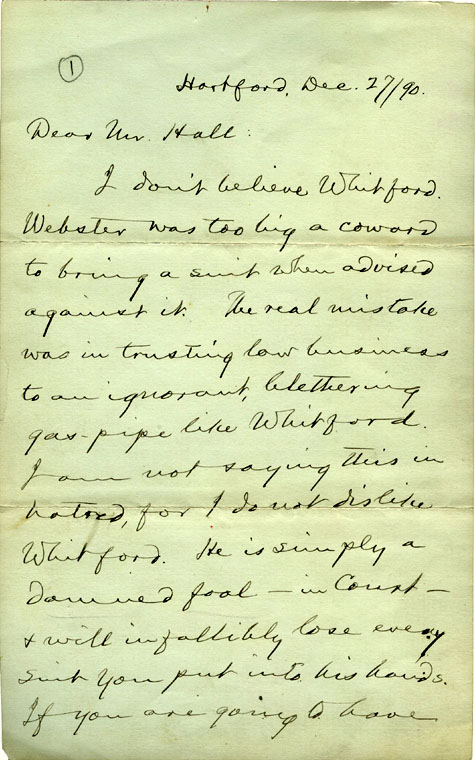 1
Hartford, Dec. 27/90.
Dear Mr. Hall:
I don't believe Whitford.
Webster was too big a coward
to bring a suit when advised
against it. The real mistake
was in trusting law business
to an ignorant, blethering
gas-pipe like Whitford.
I am not saying this in
hatred, for I do not dislike
Whitford. He is simply a
damned fool — in Court —
& will infallibly lose every
suit you put into his hands.
If you are going to have